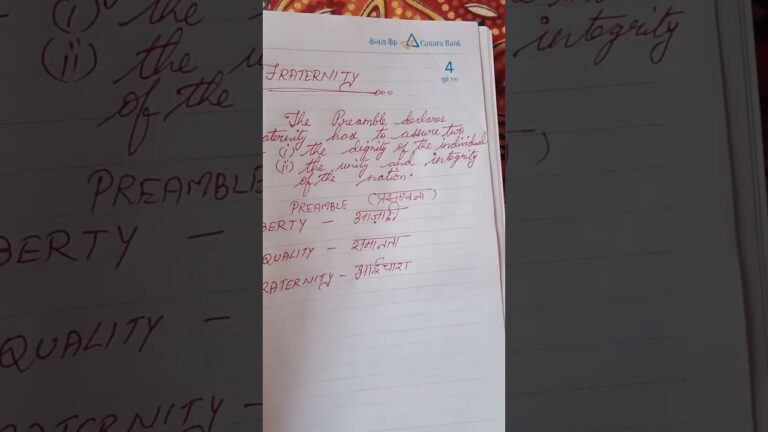 केनरा बैंक Canara Bank
4
शुक्र FRI
FRATERNITY
The Preamble declares
aternity has to assure two
(i) the dignity of the individual
(ii) the unity and integrity
of the nation.
PREAMBLE (प्रस्तावना)
BERTY - आज़ादी
QUALITY - समानता
RATERNITY - भाईचारा
(i) the
(ii) the u
of the
PREAMBLE
BERTY -
QUALITY -
ATERNITY -
integrity
)